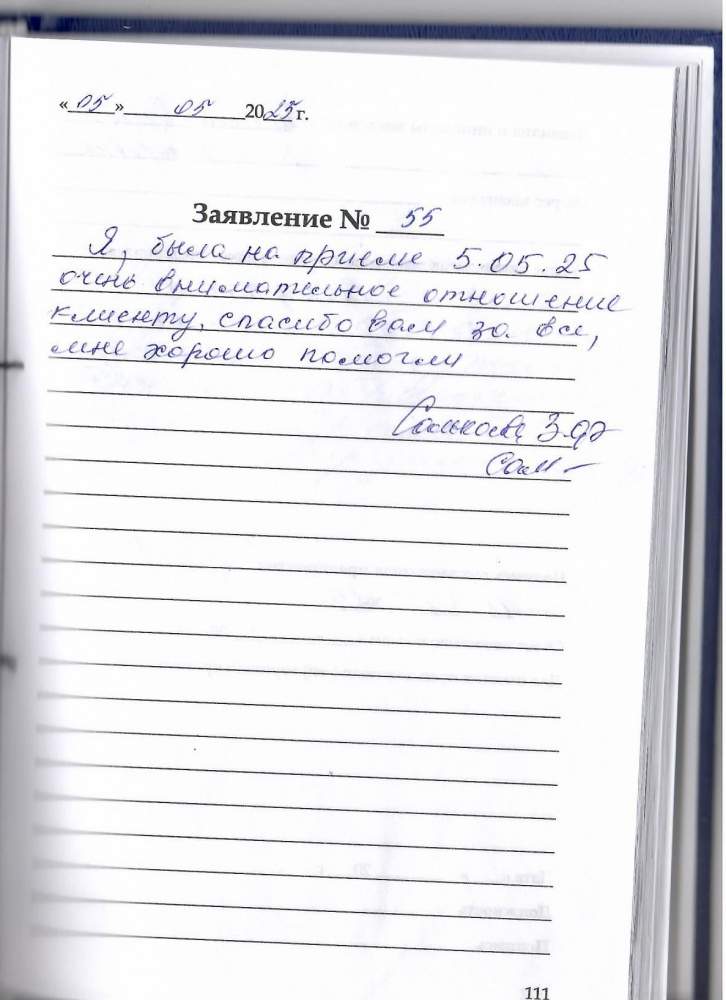 «05» 05 2025 г.
Заявление № 55
Я, была на приеме 5.05.25
очень внимательное отношение
клиенту, спасибо вам за все,
мне хорошо помогли
111